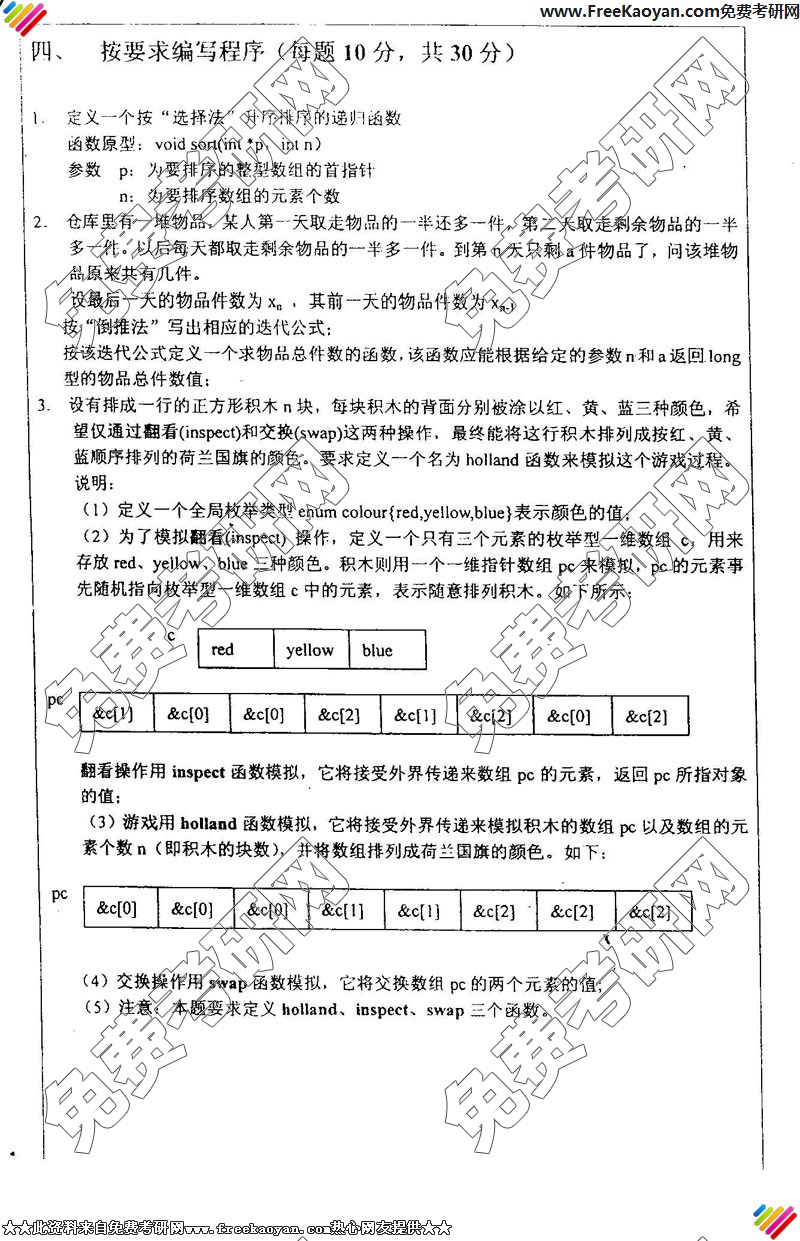 www.FreeKaoyan.com免费考研网
四、 按要求编写程序（每题10分，共30分）
1. 定义一个按“选择法”升序排序的递归函数
函数原型：void sort(int *p，int n）
参数 p：为要排序的整型数组的首指针
n：为要排序数组的元素个数
2. 仓库里有一堆物品，某人第一天取走物品的一半还多一件，第二天取走剩余物品的一半
多一件。以后每天都取走剩余物品的一半多一件。到第n天只剩a件物品了，问该堆物
品原来共有几件。
设最后一天的物品件数为xn ，其前一天的物品件数为xn-1
按“倒推法”写出相应的迭代公式；
按该迭代公式定义一个求物品总件数的函数，该函数应能根据给定的参数n和a返回long
型的物品总件数值；
3. 设有排成一行的正方形积木n块，每块积木的背面分别被涂以红、黄、蓝三种颜色，希
望仅通过翻看(inspect)和交换(swap)这两种操作，最终能将这行积木排列成按红、黄、
蓝顺序排列的荷兰国旗的颜色。要求定义一个名为holland函数来模拟这个游戏过程。
说明：
（1）定义一个全局枚举类型enum colour{red,yellow,blue}表示颜色的值；
（2）为了模拟翻看(inspect) 操作，定义一个只有三个元素的枚举型一维数组 c，用来
存放red、yellow、blue三种颜色。积木则用一个一维指针数组pc来模拟，pc的元素事
先随机指向枚举型一维数组c中的元素，表示随意排列积木。如下所示：
c red yellow blue
pc &c[1] &c[0] &c[0] &c[2] &c[1] &c[2] &c[0] &c[2]
翻看操作用inspect函数模拟，它将接受外界传递来数组pc的元素，返回pc所指对象
的值；
（3）游戏用holland函数模拟，它将接受外界传递来模拟积木的数组pc以及数组的元
素个数n（即积木的块数），并将数组排列成荷兰国旗的颜色。如下：
pc &c[0] &c[0] &c[0] &c[1] &c[1] &c[2] &c[2] &c[2]
（4）交换操作用swap函数模拟，它将交换数组pc的两个元素的值；
（5）注意：本题要求定义holland、inspect、swap三个函数。
免费考研网
免费考研网
免费考研网
免费考研网
免费考研网
免费考研网
免费考研网
免费考研网
★★此资料来自免费考研网www.freekaoyan.com热心网友提供★★